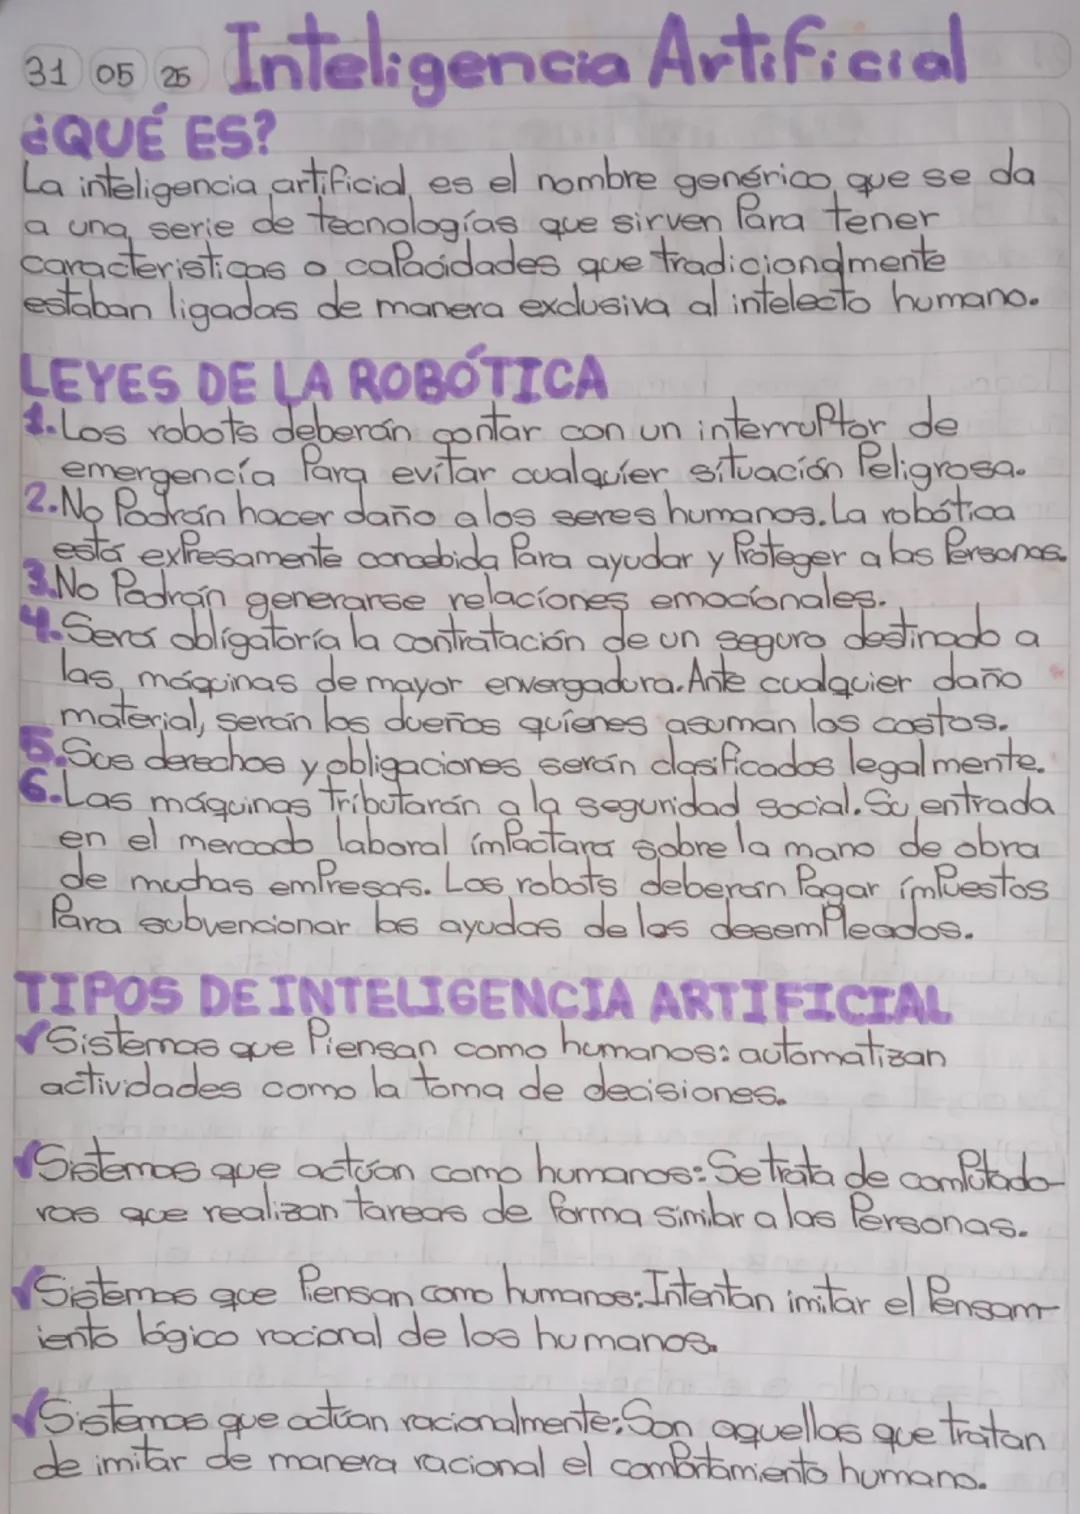 31 05 25 Inteligencia Artificial
¿QUÉ ES?
La inteligencia artificial es el nombre genérico que se da
a una serie de tecnologías que sirven Para tener
caracteristicas o capacidades que tradicionalmente
estaban ligadas de manera exclusiva al intelecto humano.
LEYES DE LA ROBÓTICA
1. Los robots deberán contar con un interruptor de
emergencía Para evitar cualquier situación Peligrosa.
2. No Podrán hacer daño a los seres humanos. La robótica
está expresamente concebida Para ayudar y Proteger a las Personas.
3. No Podrán generarse relaciones emocionales.
4. Será obligatoría la contratación de un seguro destinado a
las máquinas de mayor envergadura. Ante cualquier daño
material, serán los dueños quíenes asuman los costos.
5. Sus derechos y obligaciones serán clasificados legalmente.
6. Las máquinas tributarán a la seguridad social. Su entrada
en el mercado laboral ímPactara sobre la mano de obra
de muchas emPresas. Los robots deberán Pagar ímPuestos
Para subvencionar las ayudas de los desemPleados.
TIPOS DE INTELIGENCIA ARTIFICIAL
✓Sistemas que Piensan como humanos: automatizan
actividades como la toma de decisiones.
✓Sistemas que actúan como humanos: Se trata de comPutado-
ras que realizan tareas de forma similar a las Personas.
✓Sistemas que Piensan como humanos: Intentan imitar el Pensam-
iento lógico racional de los humanos.
✓Sistemas que actúan racionalmente: Son aquellos que tratan
de imitar de manera racional el comPortamiento humano.